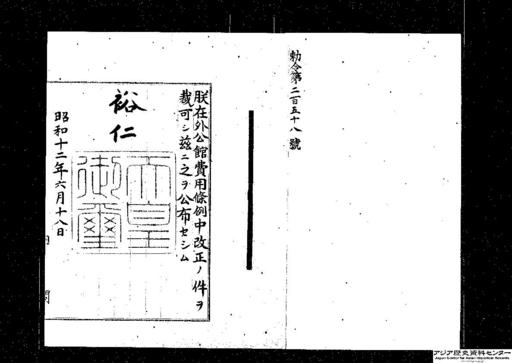 勅令第二百五十八號
朕在外公館費用條例中改正ノ件ヲ
裁可シ茲ニ之ヲ公布セシム
裕仁
天皇御璽
昭和十二年六月十八日
内閣
アジア歴史資料センター
Japan Center for Asian Historical Records